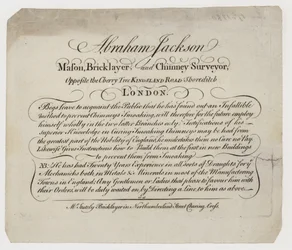 Abraham Jackson
Mason, Bricklayer, and Chimney Surveyor,
Opposite the Cherry Tree KINGSLAND ROAD Shoreditch
LONDON.
Begs leave to acquaint the Public that he has found out an Infallible
Method to prevent Chimneys Smoaking, & will therefore for the future employ
himself wholly in the two latter Branches only. Testifications of his
superior Knowledge in Curing Smoaking Chimneys may be had from
the greatest part of the Nobility of England, he undertakes them no Cure no Pay.
Likewise Gives Instructions how to Build them at the first in new Buildings
to prevent them from Smoaking.
NB. He has had Twenty Years Experience in all sorts of Draughts for
Mechanicks both in Metals & Minerals in most of the Manufacturing
Towns in England: Any Gentlemen or Ladies that please to favour him with
their Orders, will be duly waited on, by directing a Line to him as above.
or
Mr. Bricklayer in Northumberland Street Charing Cross.